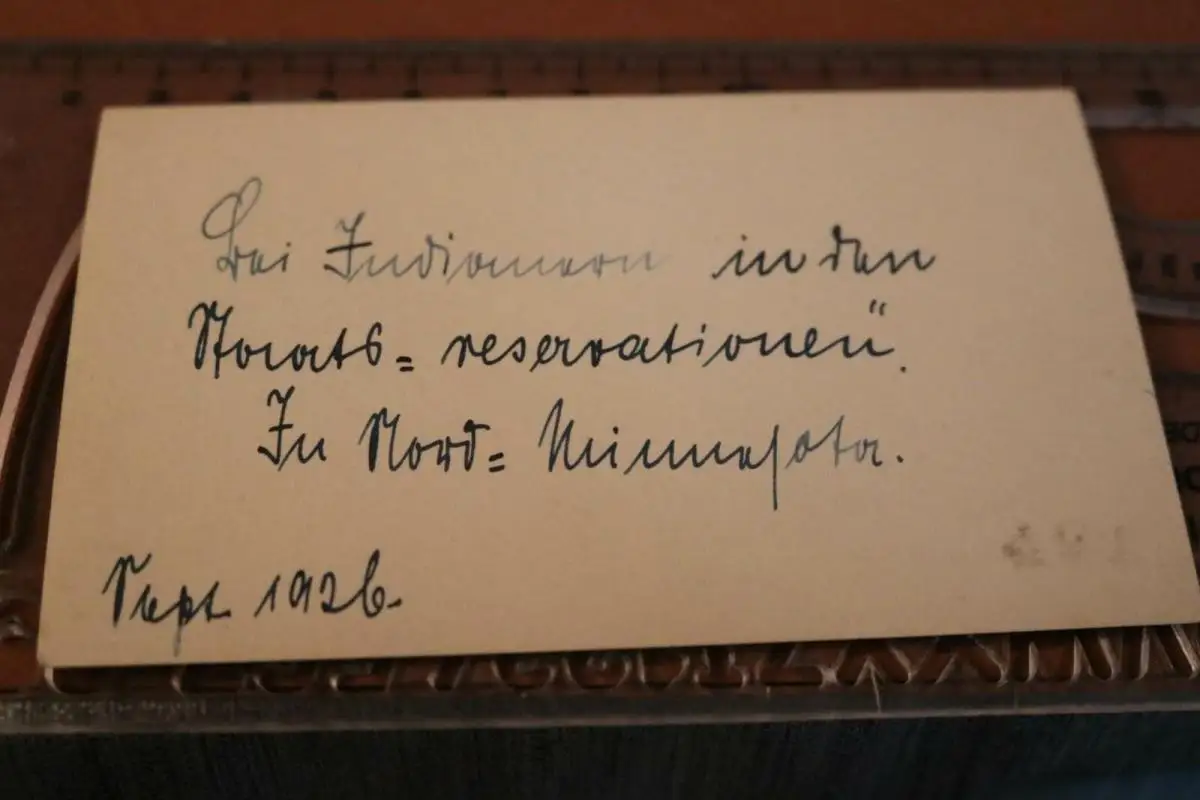 Bei Indianern in den
Staats=reservationen".
In Nord=Minnesota.
Sept. 1926.